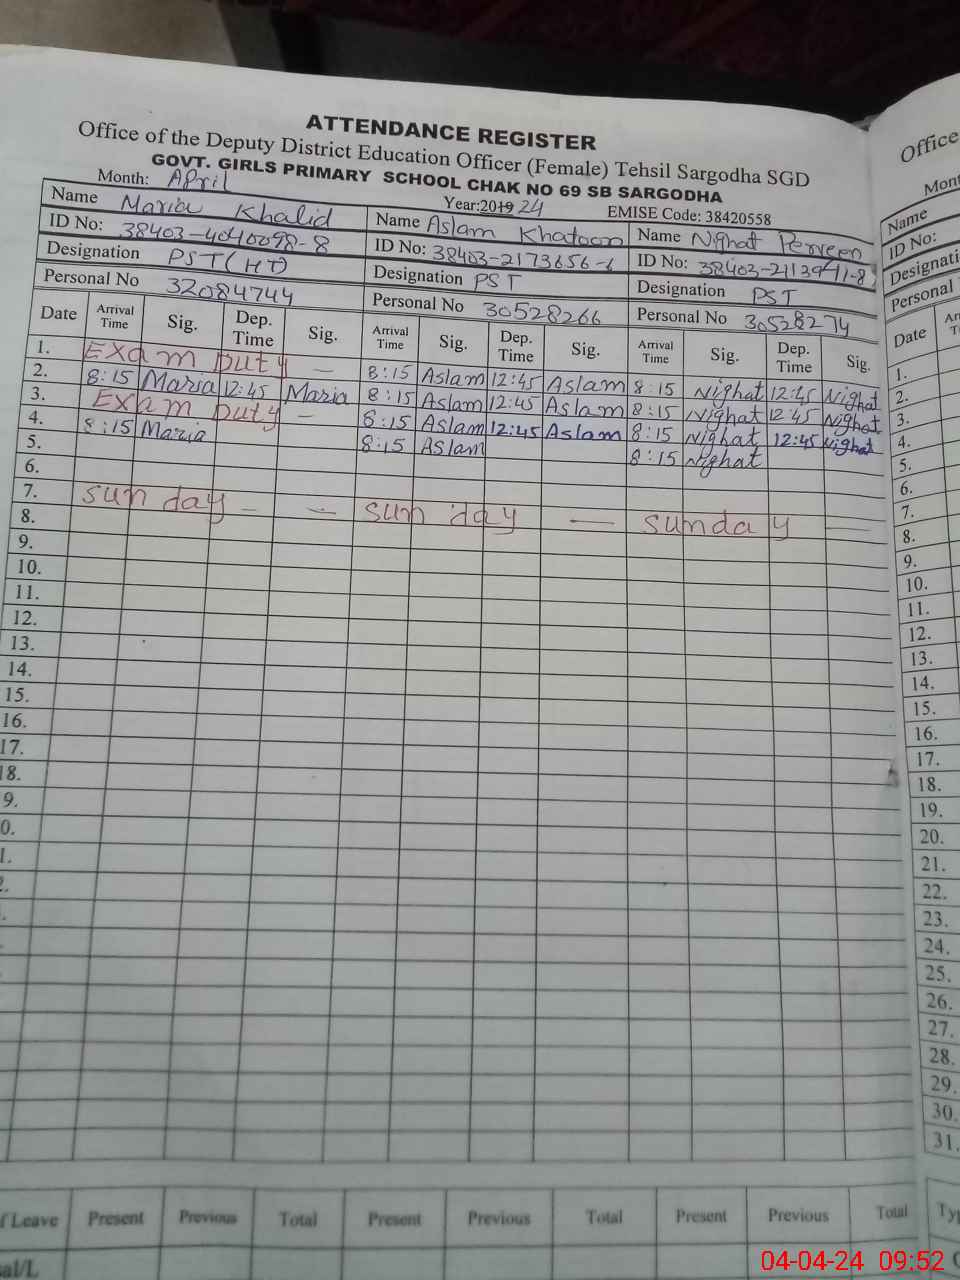 ATTENDANCE REGISTER
Office of the Deputy District Education Officer (Female) Tehsil Sargodha SGD
GOVT. GIRLS PRIMARY SCHOOL CHAK NO 69 SB SARGODHA
Month: April Year:2019 24 EMISE Code: 38420558
Name Maria Khalid Name Aslam Khatoon Name Nighat Perveen
ID No: 38403-4040098-8 ID No: 38403-2173656-6 ID No:
Designation PST(HT) Designation PST Designation PST
Personal No 32084744 Personal No 30528266 Personal No 30528274
Date Arrival Time Sig. Dep. Time Sig. Arrival Time Sig. Dep. Time Sig. Arrival Time Sig. Dep. Time Sig.
1. Exam Duty — 8:15 Aslam 12:45 Aslam 8:15 Nighat 12:45 Nighat
2. 8:15 Maria 12:45 Maria 8:15 Aslam 12:45 Aslam 8:15 Nighat 12:45 Nighat
3. Exam Duty — 8:15 Aslam 12:45 Aslam 8:15 Nighat 12:45 Nighat
4. 8:15 Maria 8:15 Aslam 8:15 Nighat
5.
6.
7. sunday — — sunday — sunday —
8.
9.
10.
11.
12.
13.
14.
15.
16.
17.
18.
9.
0.
1.
2.
f Leave Present Previous Total Present Previous Total Present Previous Total
al/L
Office
Mont
Name
ID No:
Designati
Personal
Date
1.
2.
3.
4.
5.
6.
7.
8.
9.
10.
11.
12.
13.
14.
15.
16.
17.
18.
19.
20.
21.
22.
23.
24.
25.
26.
27.
28.
29.
30.
31.
Typ
04-04-24 09:52